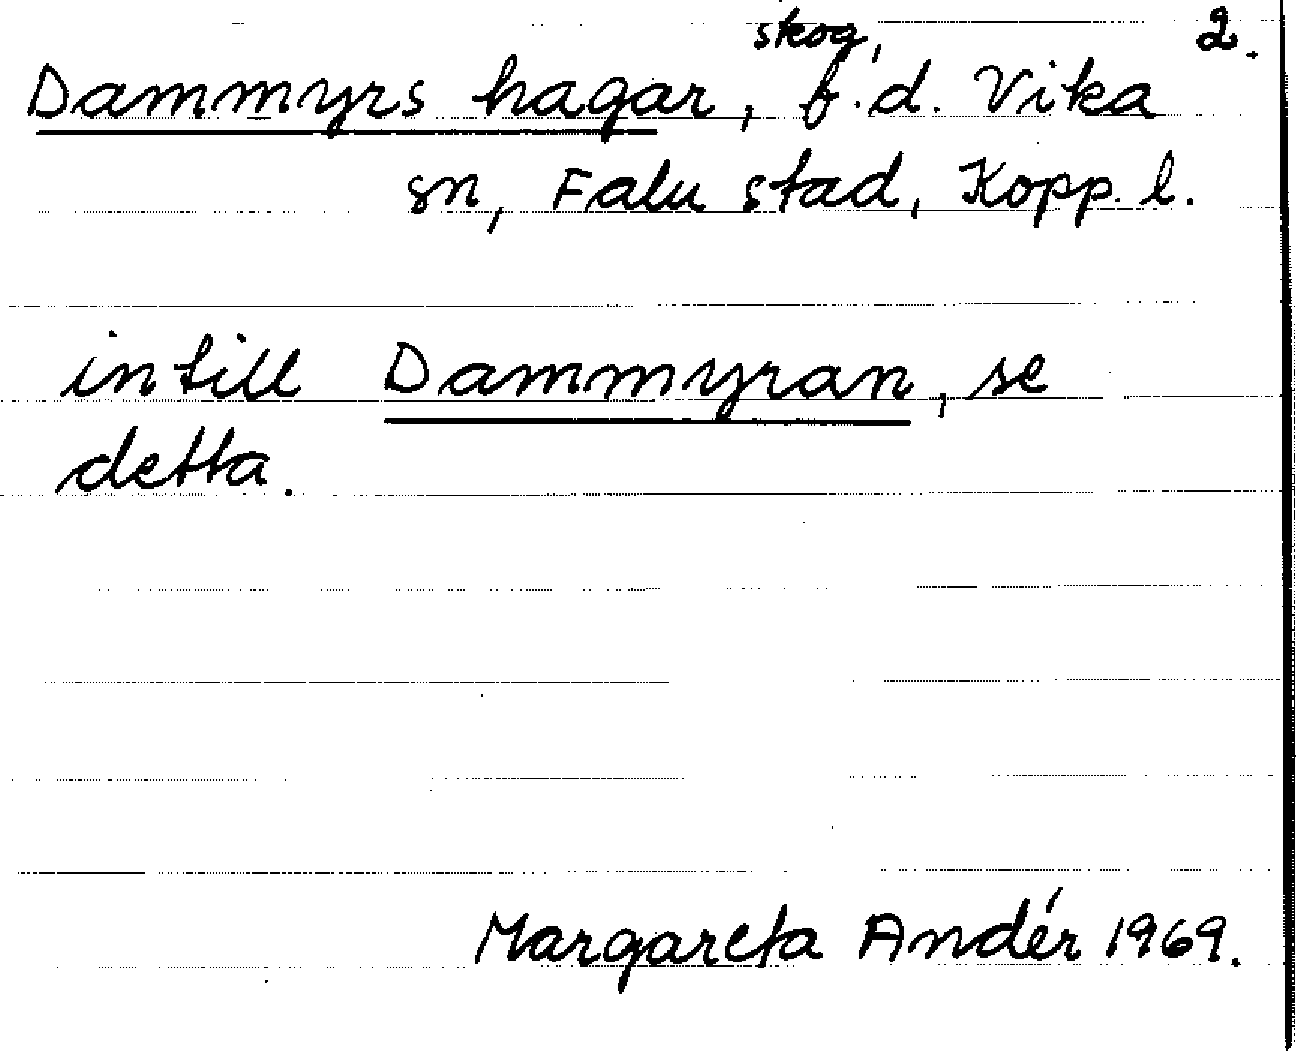 skog, 2.
Dammyrs hagar, f.d. Vika
sn, Falu stad, Kopp. l.
intill Dammyran, se
detta.
Margareta Andér 1969.